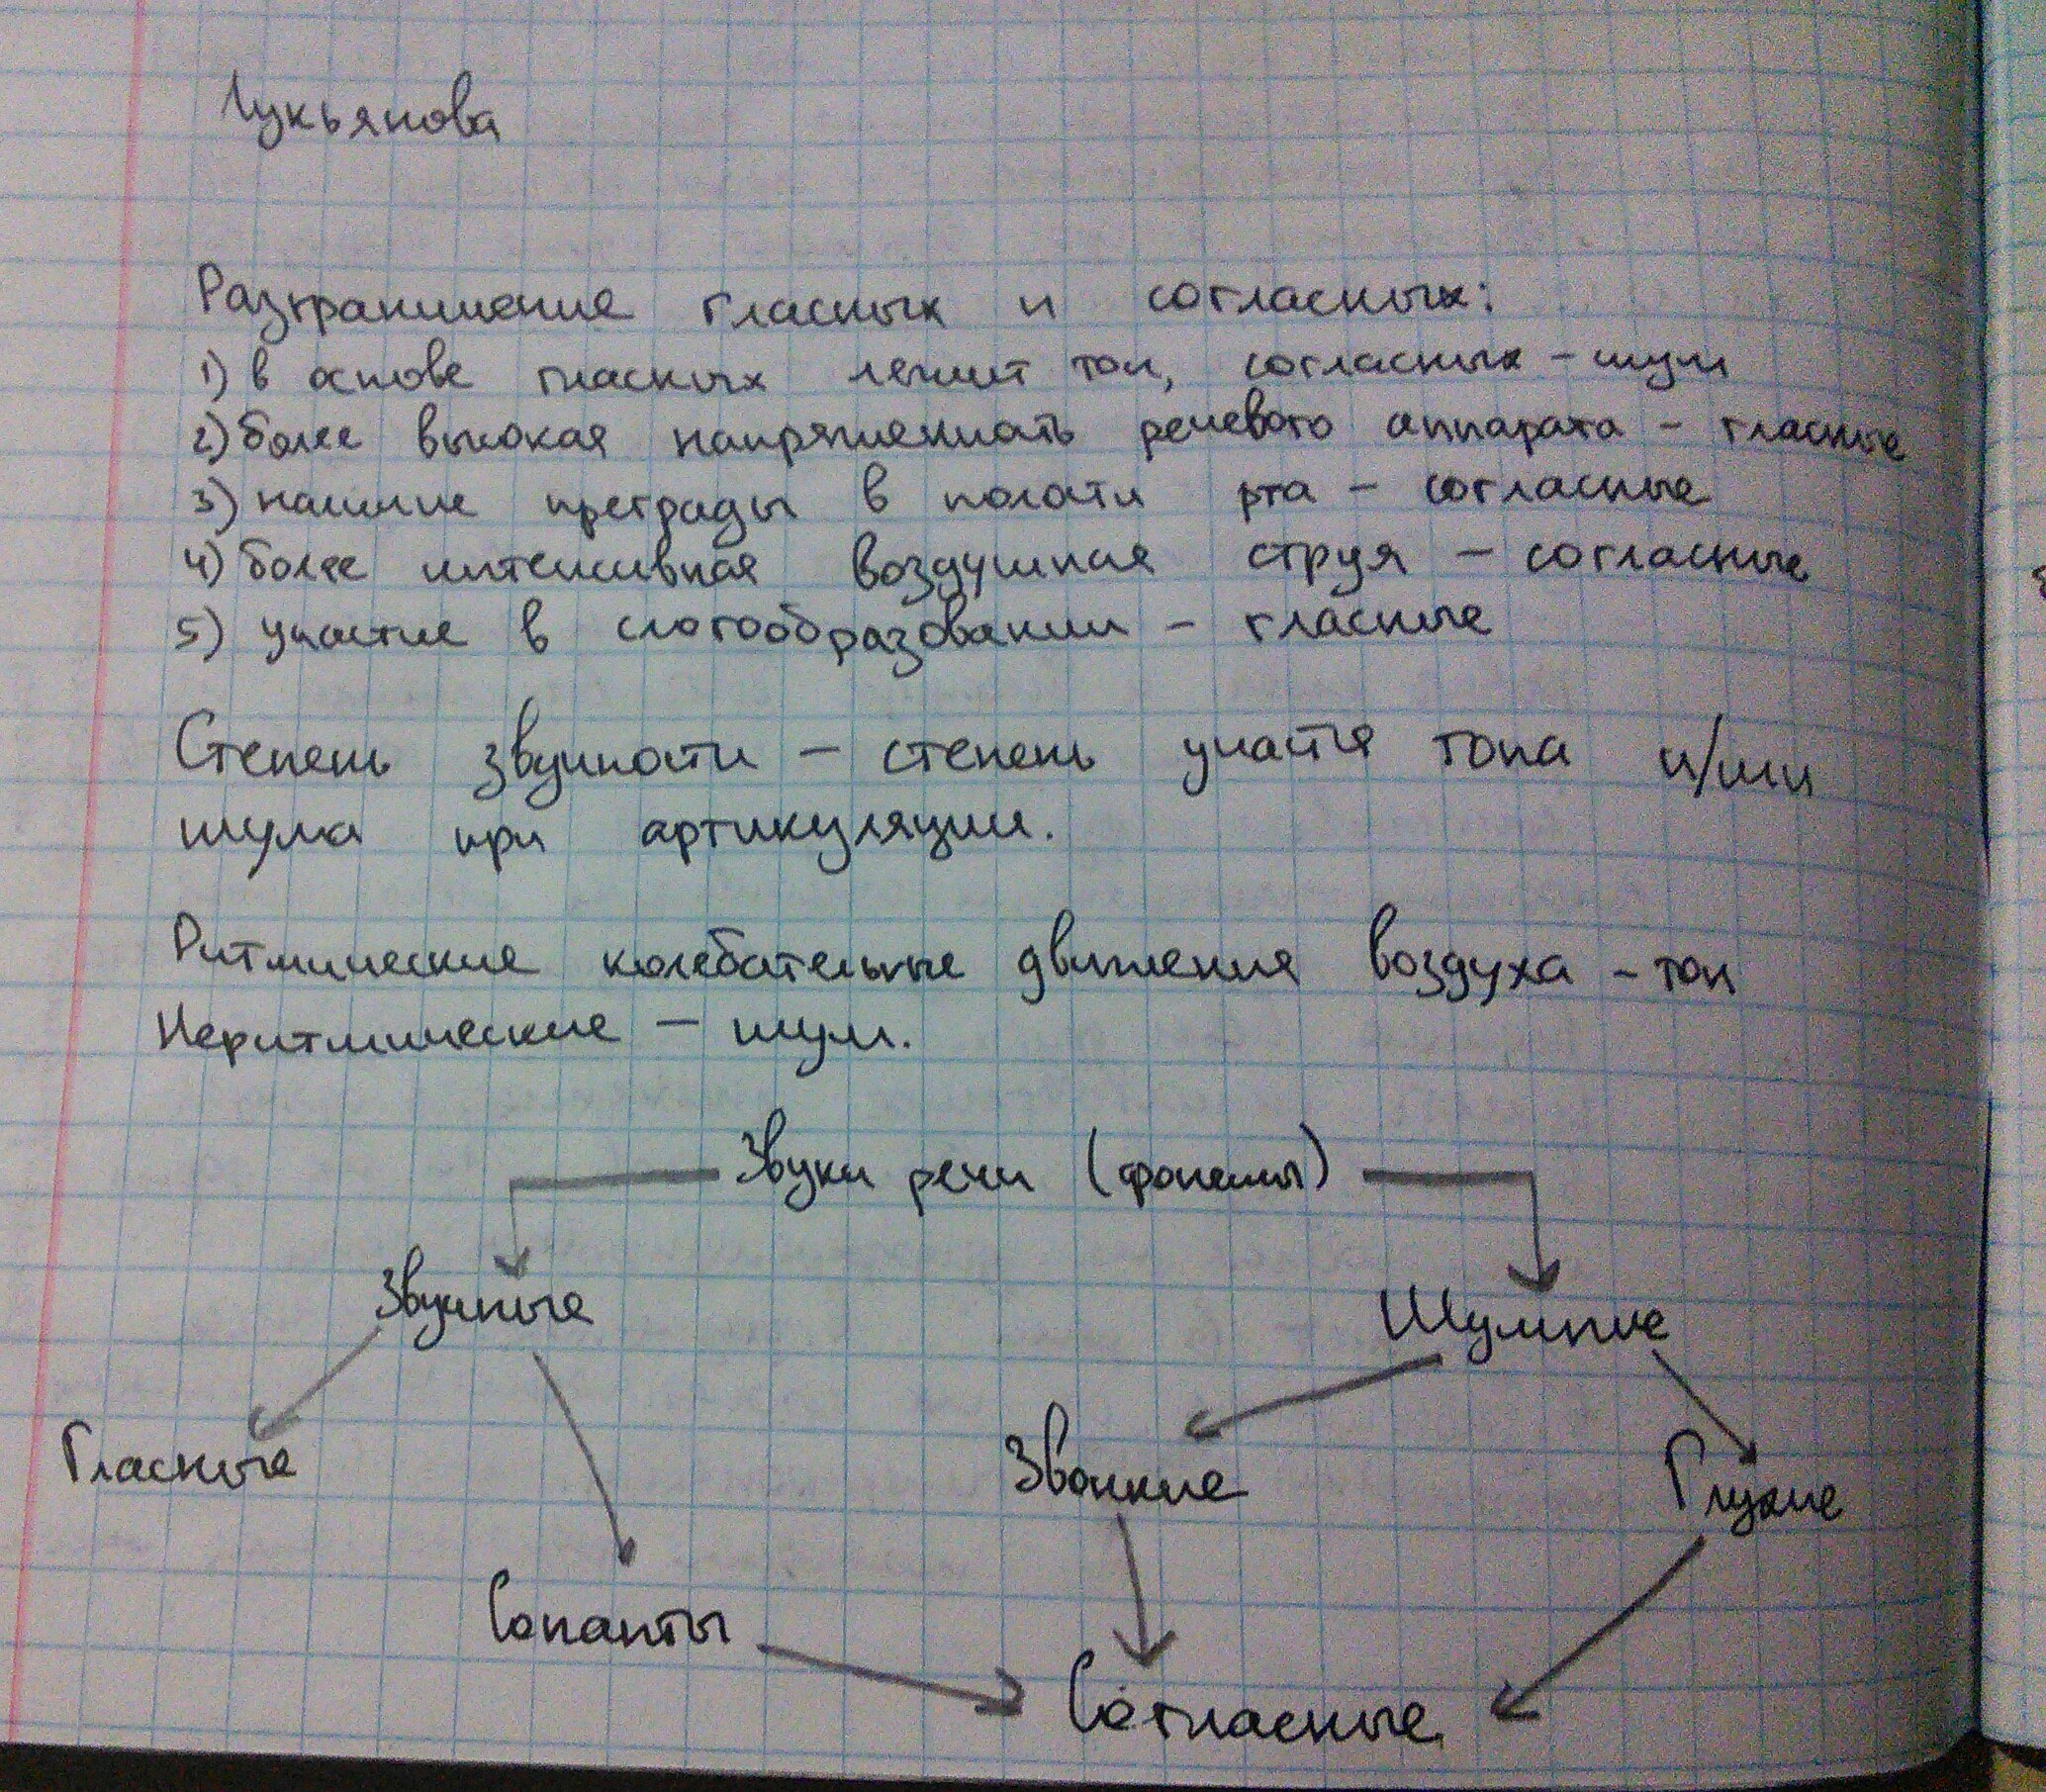 Лукьянова
Разграничение гласных и согласных:
1) в основе гласных лежит тон, согласных - шум
2) более высокая напряженность речевого аппарата - гласные
3) наличие преграды в полости рта - согласные
4) более интенсивная воздушная струя - согласные
5) участие в слогообразовании - гласные
Степень звучности - степень участия тона и/или
шума при артикуляции.
Ритмические колебательные движения воздуха - тон
Неритмические - шум.
Звуки речи (фонемы)
Звучные
Шумные
Гласные
Звонкие
Глухие
Сонанты
Согласные